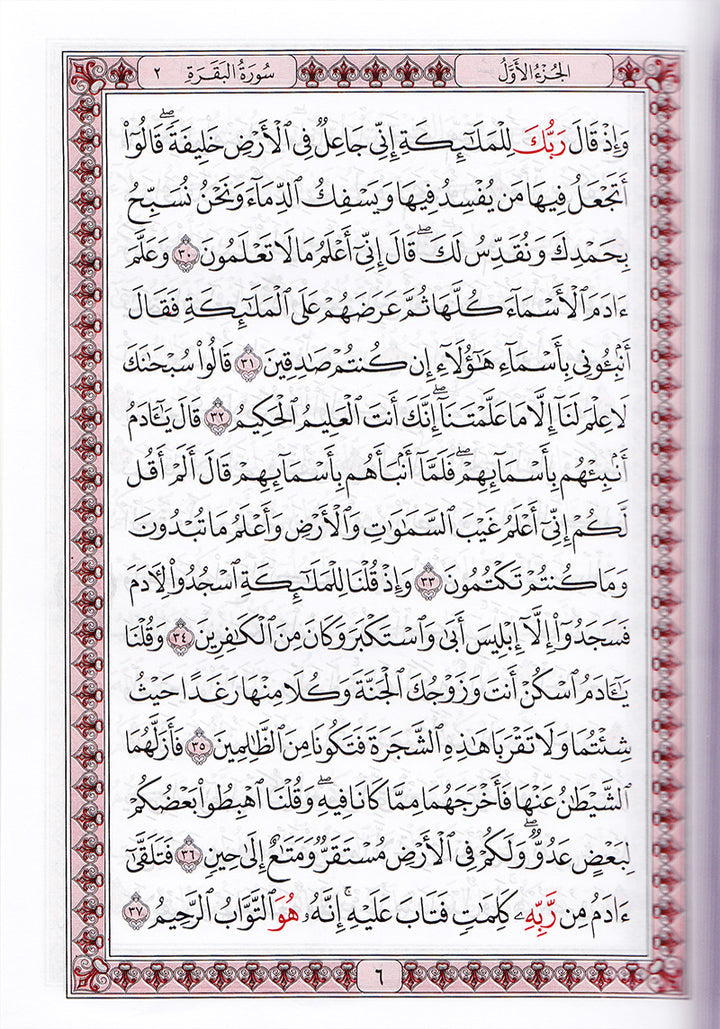 الجُزْءُ الأَوَّلُ
سُورَةُ البَقَرَةِ ٢
وَإِذْ قَالَ رَبُّكَ لِلْمَلَٰٓئِكَةِ إِنِّي جَاعِلٌ فِي ٱلْأَرْضِ خَلِيفَةً ۖ قَالُوٓا۟
أَتَجْعَلُ فِيهَا مَن يُفْسِدُ فِيهَا وَيَسْفِكُ ٱلدِّمَآءَ وَنَحْنُ نُسَبِّحُ
بِحَمْدِكَ وَنُقَدِّسُ لَكَ ۖ قَالَ إِنِّيٓ أَعْلَمُ مَا لَا تَعْلَمُونَ ٣٠ وَعَلَّمَ
ءَادَمَ ٱلْأَسْمَآءَ كُلَّهَا ثُمَّ عَرَضَهُمْ عَلَى ٱلْمَلَٰٓئِكَةِ فَقَالَ
أَنۢبِـُٔونِي بِأَسْمَآءِ هَٰٓؤُلَآءِ إِن كُنتُمْ صَٰدِقِينَ ٣١ قَالُوا۟ سُبْحَٰنَكَ
لَا عِلْمَ لَنَآ إِلَّا مَا عَلَّمْتَنَآ ۖ إِنَّكَ أَنتَ ٱلْعَلِيمُ ٱلْحَكِيمُ ٣٢ قَالَ يَٰٓـَٔادَمُ
أَنۢبِئْهُم بِأَسْمَآئِهِمْ ۖ فَلَمَّآ أَنۢبَأَهُم بِأَسْمَآئِهِمْ قَالَ أَلَمْ أَقُل
لَّكُمْ إِنِّيٓ أَعْلَمُ غَيْبَ ٱلسَّمَٰوَٰتِ وَٱلْأَرْضِ وَأَعْلَمُ مَا تُبْدُونَ
وَمَا كُنتُمْ تَكْتُمُونَ ٣٣ وَإِذْ قُلْنَا لِلْمَلَٰٓئِكَةِ ٱسْجُدُوا۟ لِـَٔادَمَ
فَسَجَدُوٓا۟ إِلَّآ إِبْلِيسَ أَبَىٰ وَٱسْتَكْبَرَ وَكَانَ مِنَ ٱلْكَٰفِرِينَ ٣٤ وَقُلْنَا
يَٰٓـَٔادَمُ ٱسْكُنْ أَنتَ وَزَوْجُكَ ٱلْجَنَّةَ وَكُلَا مِنْهَا رَغَدًا حَيْثُ
شِئْتُمَا وَلَا تَقْرَبَا هَٰذِهِ ٱلشَّجَرَةَ فَتَكُونَا مِنَ ٱلظَّٰلِمِينَ ٣٥ فَأَزَلَّهُمَا
ٱلشَّيْطَٰنُ عَنْهَا فَأَخْرَجَهُمَا مِمَّا كَانَا فِيهِ ۖ وَقُلْنَا ٱهْبِطُوا۟ بَعْضُكُمْ
لِبَعْضٍ عَدُوٌّ ۖ وَلَكُمْ فِي ٱلْأَرْضِ مُسْتَقَرٌّ وَمَتَٰعٌ إِلَىٰ حِينٍ ٣٦ فَتَلَقَّىٰٓ
ءَادَمُ مِن رَّبِّهِۦ كَلِمَٰتٍ فَتَابَ عَلَيْهِ ۚ إِنَّهُۥ هُوَ ٱلتَّوَّابُ ٱلرَّحِيمُ ٣٧
٦